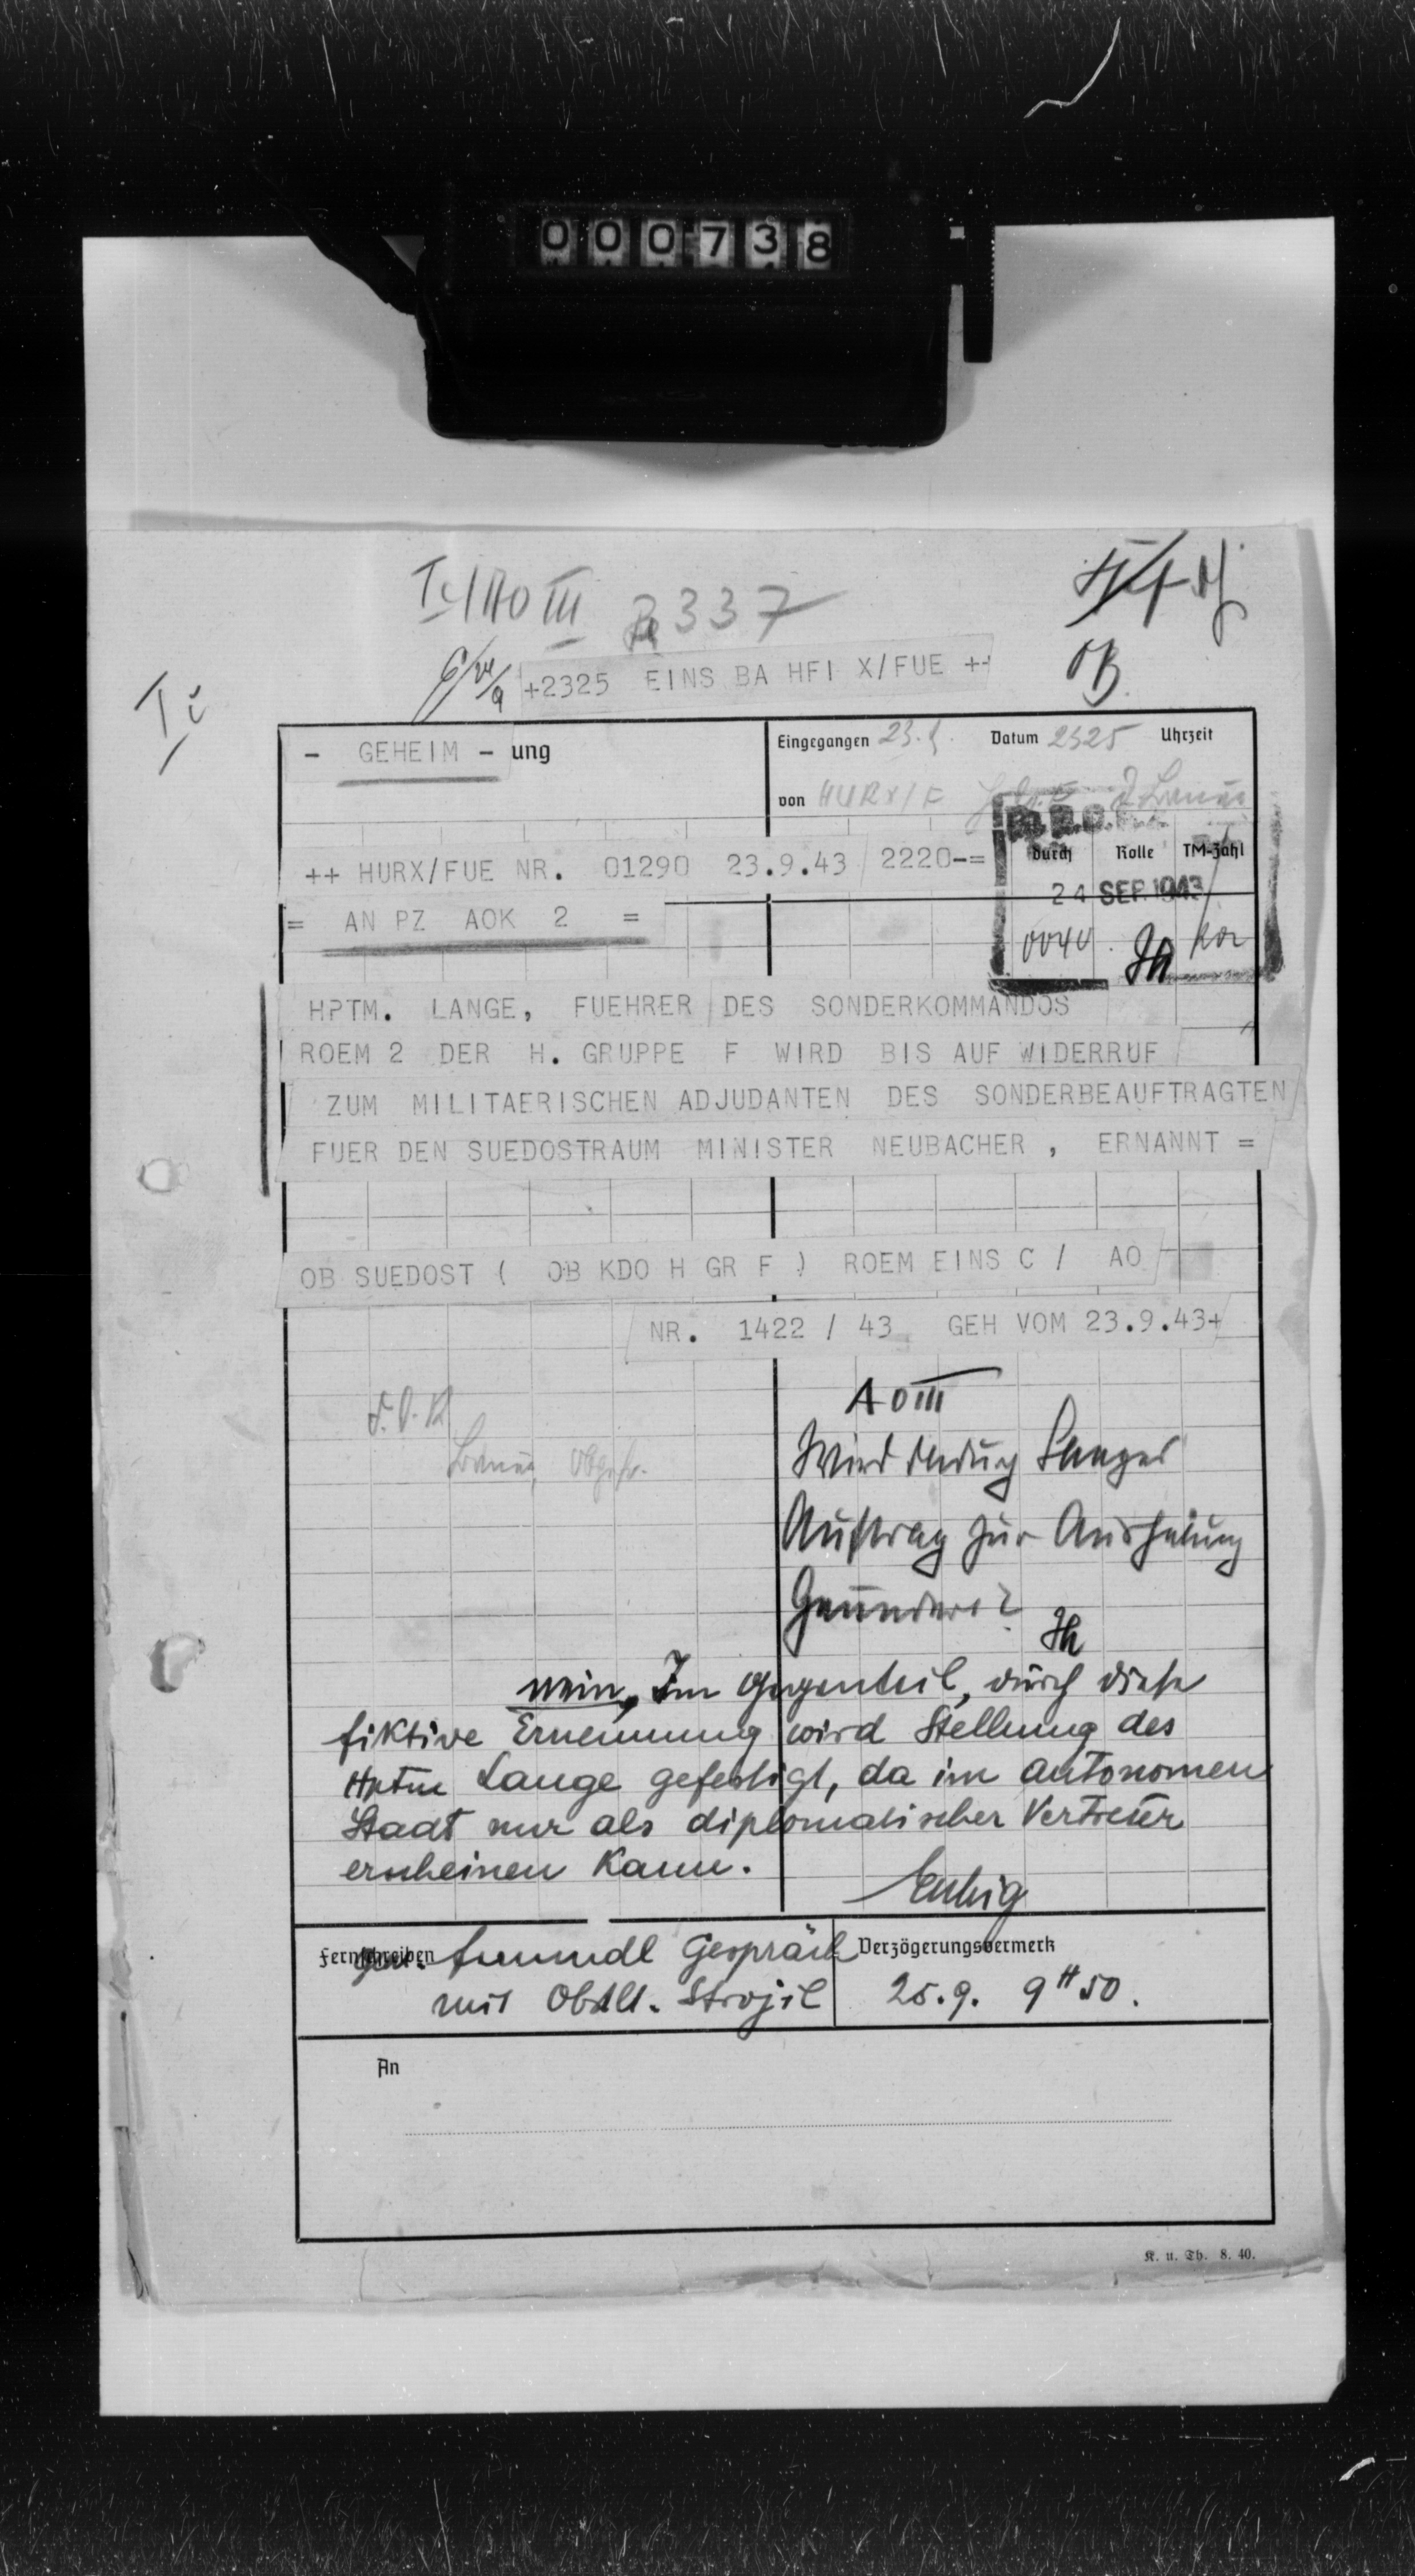 000738
Ic/AO III 337
OB.
+2325 EINS BA HFI X/FUE ++
Ic
- GEHEIM - ung
Eingegangen 23.9. Datum 2325 Uhrzeit
von HURX/F
durch Rolle TM-Zahl
++ HURX/FUE NR. 01290 23.9.43 2220-=
24 SEP. 1943
= AN PZ AOK 2 =
0040
HPTM. LANGE, FUEHRER DES SONDERKOMMANDOS
ROEM 2 DER H. GRUPPE F WIRD BIS AUF WIDERRUF
ZUM MILITAERISCHEN ADJUDANTEN DES SONDERBEAUFTRAGTEN
FUER DEN SUEDOSTRAUM MINISTER NEUBACHER , ERNANNT =
OB SUEDOST ( OB KDO H GR F ) ROEM EINS C / AO
NR. 1422 / 43 GEH VOM 23.9.43+
AO III
Wird dadurch Langes
Auftrag zur Aushebung
geändert?
nein, Im Gegenteil, durch diese
fiktive Ernennung wird Stellung des
Hptm Lange gefestigt, da im autonomen
Staat nur als diplomatischer Vertreter
erscheinen kann.
Fernschreiben
fernmdl Gespräch
Verzögerungsvermerk
mit Obtlt. Strojil 25.9. 9H50.
An
K. u. Th. 8. 40.